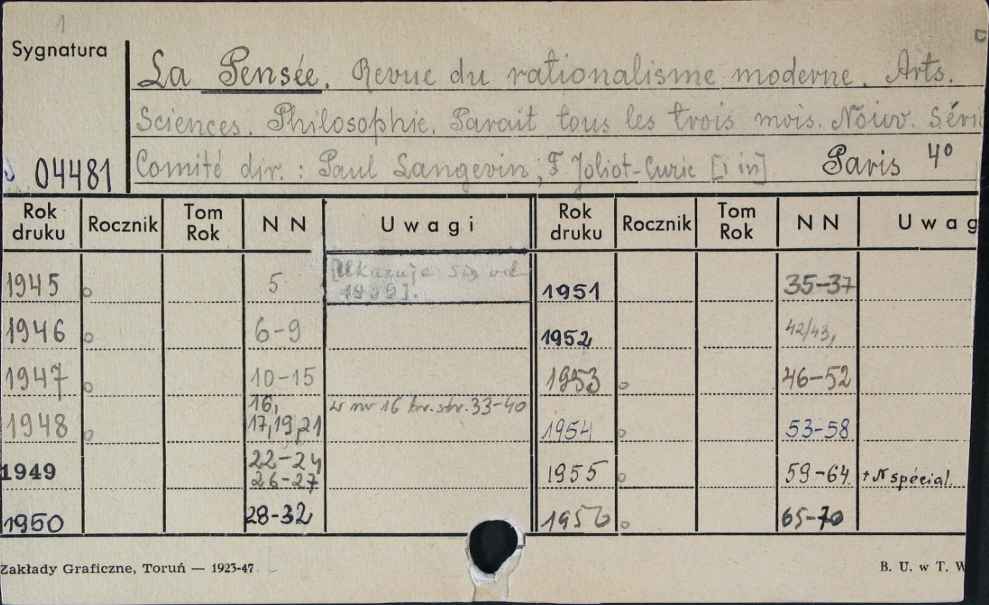 1
Sygnatura
La Pensée. Revue du rationalisme moderne. Arts.
Sciences. Philosophie. Parait tous les trois mois. Nouv. Séri
04481 Comité dir.: Paul Langevin, F Joliot-Curie [i in] Paris 4°
Rok druku Rocznik Tom Rok NN Uwagi Rok druku Rocznik Tom Rok NN Uwag
1945 5 [Ukazuje się od 1939]. 1951 35-37
1946 6-9 1952 42/43,
1947 10-15 1953 46-52
1948 16, 17,19,21 w nr 16 br. str. 33-40 1954 53-58
1949 22-24 26-27 1955 59-64 + N spécial.
1950 28-32 1956 65-70
Zakłady Graficzne, Toruń — 1923-47 B. U. w T. W